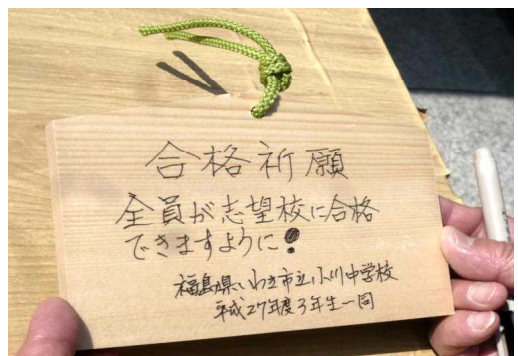 合格祈願
全員が志望校に合格
できますように!
福島県いわき市立小川中学校
平成27年度3年生一同